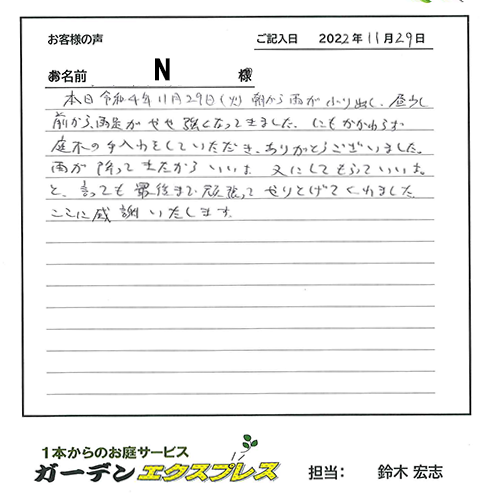 お客様の声 ご記入日 2022年11月29日
お名前 N 様
本日令和4年11月29日(火)朝から雨がふり出し、昼少し
前から、雨足がやや強くなってきました、にもかかわらず
庭木の手入れをしていただき、ありがとうございました。
雨が降ってきたからいいよ 又にしてもらっていいよ。
と、言っても最後まで頑張ってやりとげてくれました
ここに感謝いたします。
1本からのお庭サービス
ガーデンエクスプレス 担当: 鈴木 宏志